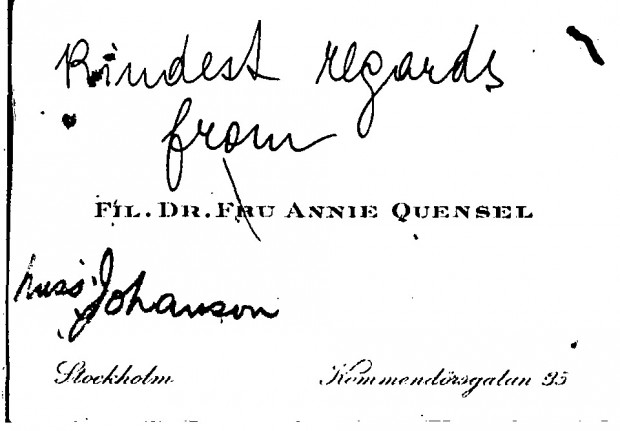 Kindest regards
from
FIL. DR. FRU ANNIE QUENSEL
Miss Johanson
Stockholm
Kommendörsgatan 35